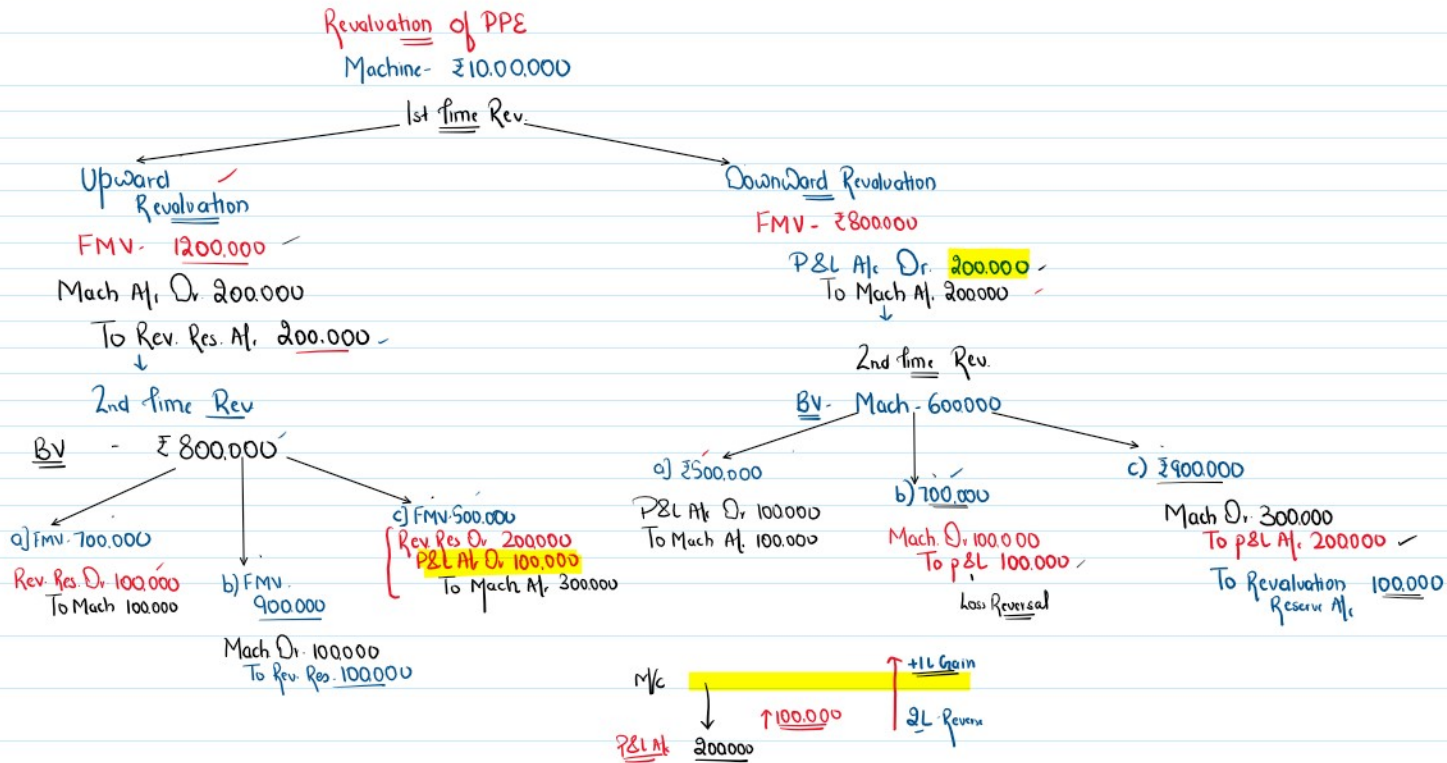 Revaluation of PPE
Machine- ₹10,00,000
1st time Rev.
Upward
Revaluation
FMV- 1200,000
Mach A/c Dr. 200,000
To Rev. Res. A/c 200,000
2nd time Rev
BV - ₹ 800,000
a] FMV-700,000
Rev. Res. Dr. 100,000
To Mach 100,000
b) FMV.
900,000
Mach Dr. 100,000
To Rev. Res. 100,000
c] FMV-500,000
Rev. Res Dr. 200,000
P&L A/c Dr. 100,000
To Mach A/c 300,000
Downward Revaluation
FMV- ₹800,000
P&L A/c Dr. 200,000
To Mach A/c 200,000
2nd time Rev.
BV- Mach - 600,000
a] ₹500,000
P&L A/c Dr. 100,000
To Mach A/c 100,000
b) 700,000
Mach. Dr. 100,000
To P&L 100,000
Loss Reversal
c) ₹900,000
Mach Dr. 300,000
To P&L A/c 200,000
To Revaluation 100,000
Reserve A/c
M/c
+1L Gain
↑100,000
2L-Reverse
P&L A/c 200,000